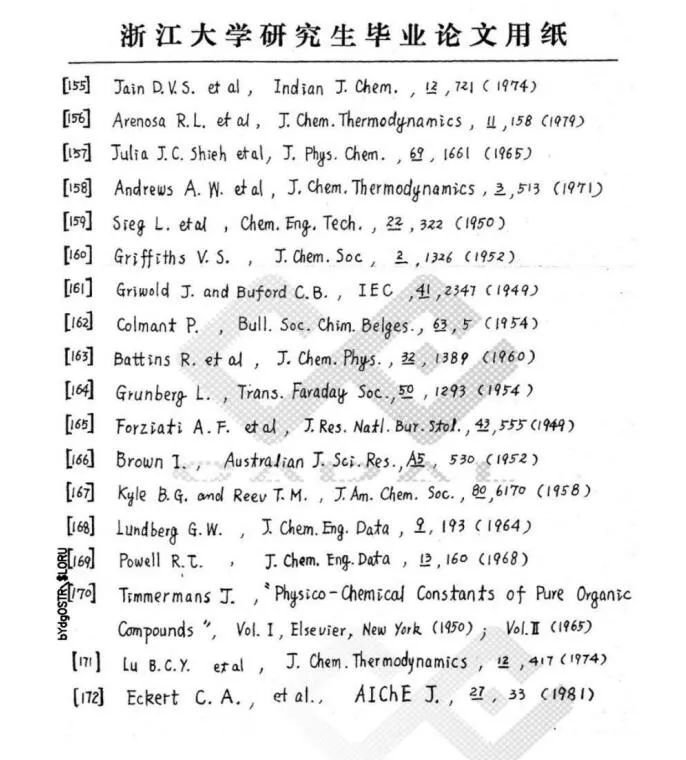 浙江大学研究生毕业论文用纸
[155] Jain D.V.S. et al , Indian J. Chem. , 12 , 721 ( 1974)
[156] Arenosa R.L. et al , J. Chem. Thermodynamics , 11 , 158 (1979)
[157] Julia J.C. Shieh etal, J. Phys. Chem. , 69 , 1661 (1965)
[158] Andrews A. W. et al , J. Chem. Thermodynamics , 3 , 513 (1971)
[159] Sieg L. etal , Chem. Eng. Tech. , 22 , 322 (1950)
[160] Griffiths V. S. , J. Chem. Soc , 2 , 1326 (1952)
[161] Griwold J. and Buford C.B. , IEC , 41 , 2347 (1949)
[162] Colmant P. , Bull. Soc. Chim. Belges. , 63 , 5 (1954)
[163] Battins R. et al , J. Chem. Phys. , 32 , 1389 (1960)
[164] Grunberg L. , Trans. Faraday Soc. , 50 , 1293 (1954)
[165] Forziati A.F. et al , J. Res. Natl. Bur. Stol. , 43 , 555 (1949)
[166] Brown I. , Australian J. Sci. Res. , A5 , 530 (1952)
[167] Kyle B.G. and Reev T.M. , J. Am. Chem. Soc. , 80 , 6170 (1958)
[168] Lundberg G.W. , J. Chem. Eng. Data , 9 , 193 (1964)
[169] Powell R.T. , J. Chem. Eng. Data , 13 , 160 (1968)
[170] Timmermans J. , " Physico-Chemical Constants of Pure Organic
Compounds " , Vol. I , Elsevier, New York (1950) ; Vol. II (1965)
[171] Lu B.C.Y. et al , J. Chem. Thermodynamics , 12 , 417 (1974)
[172] Eckert C. A. , et al. , AIChE J. , 27 , 33 (1981)